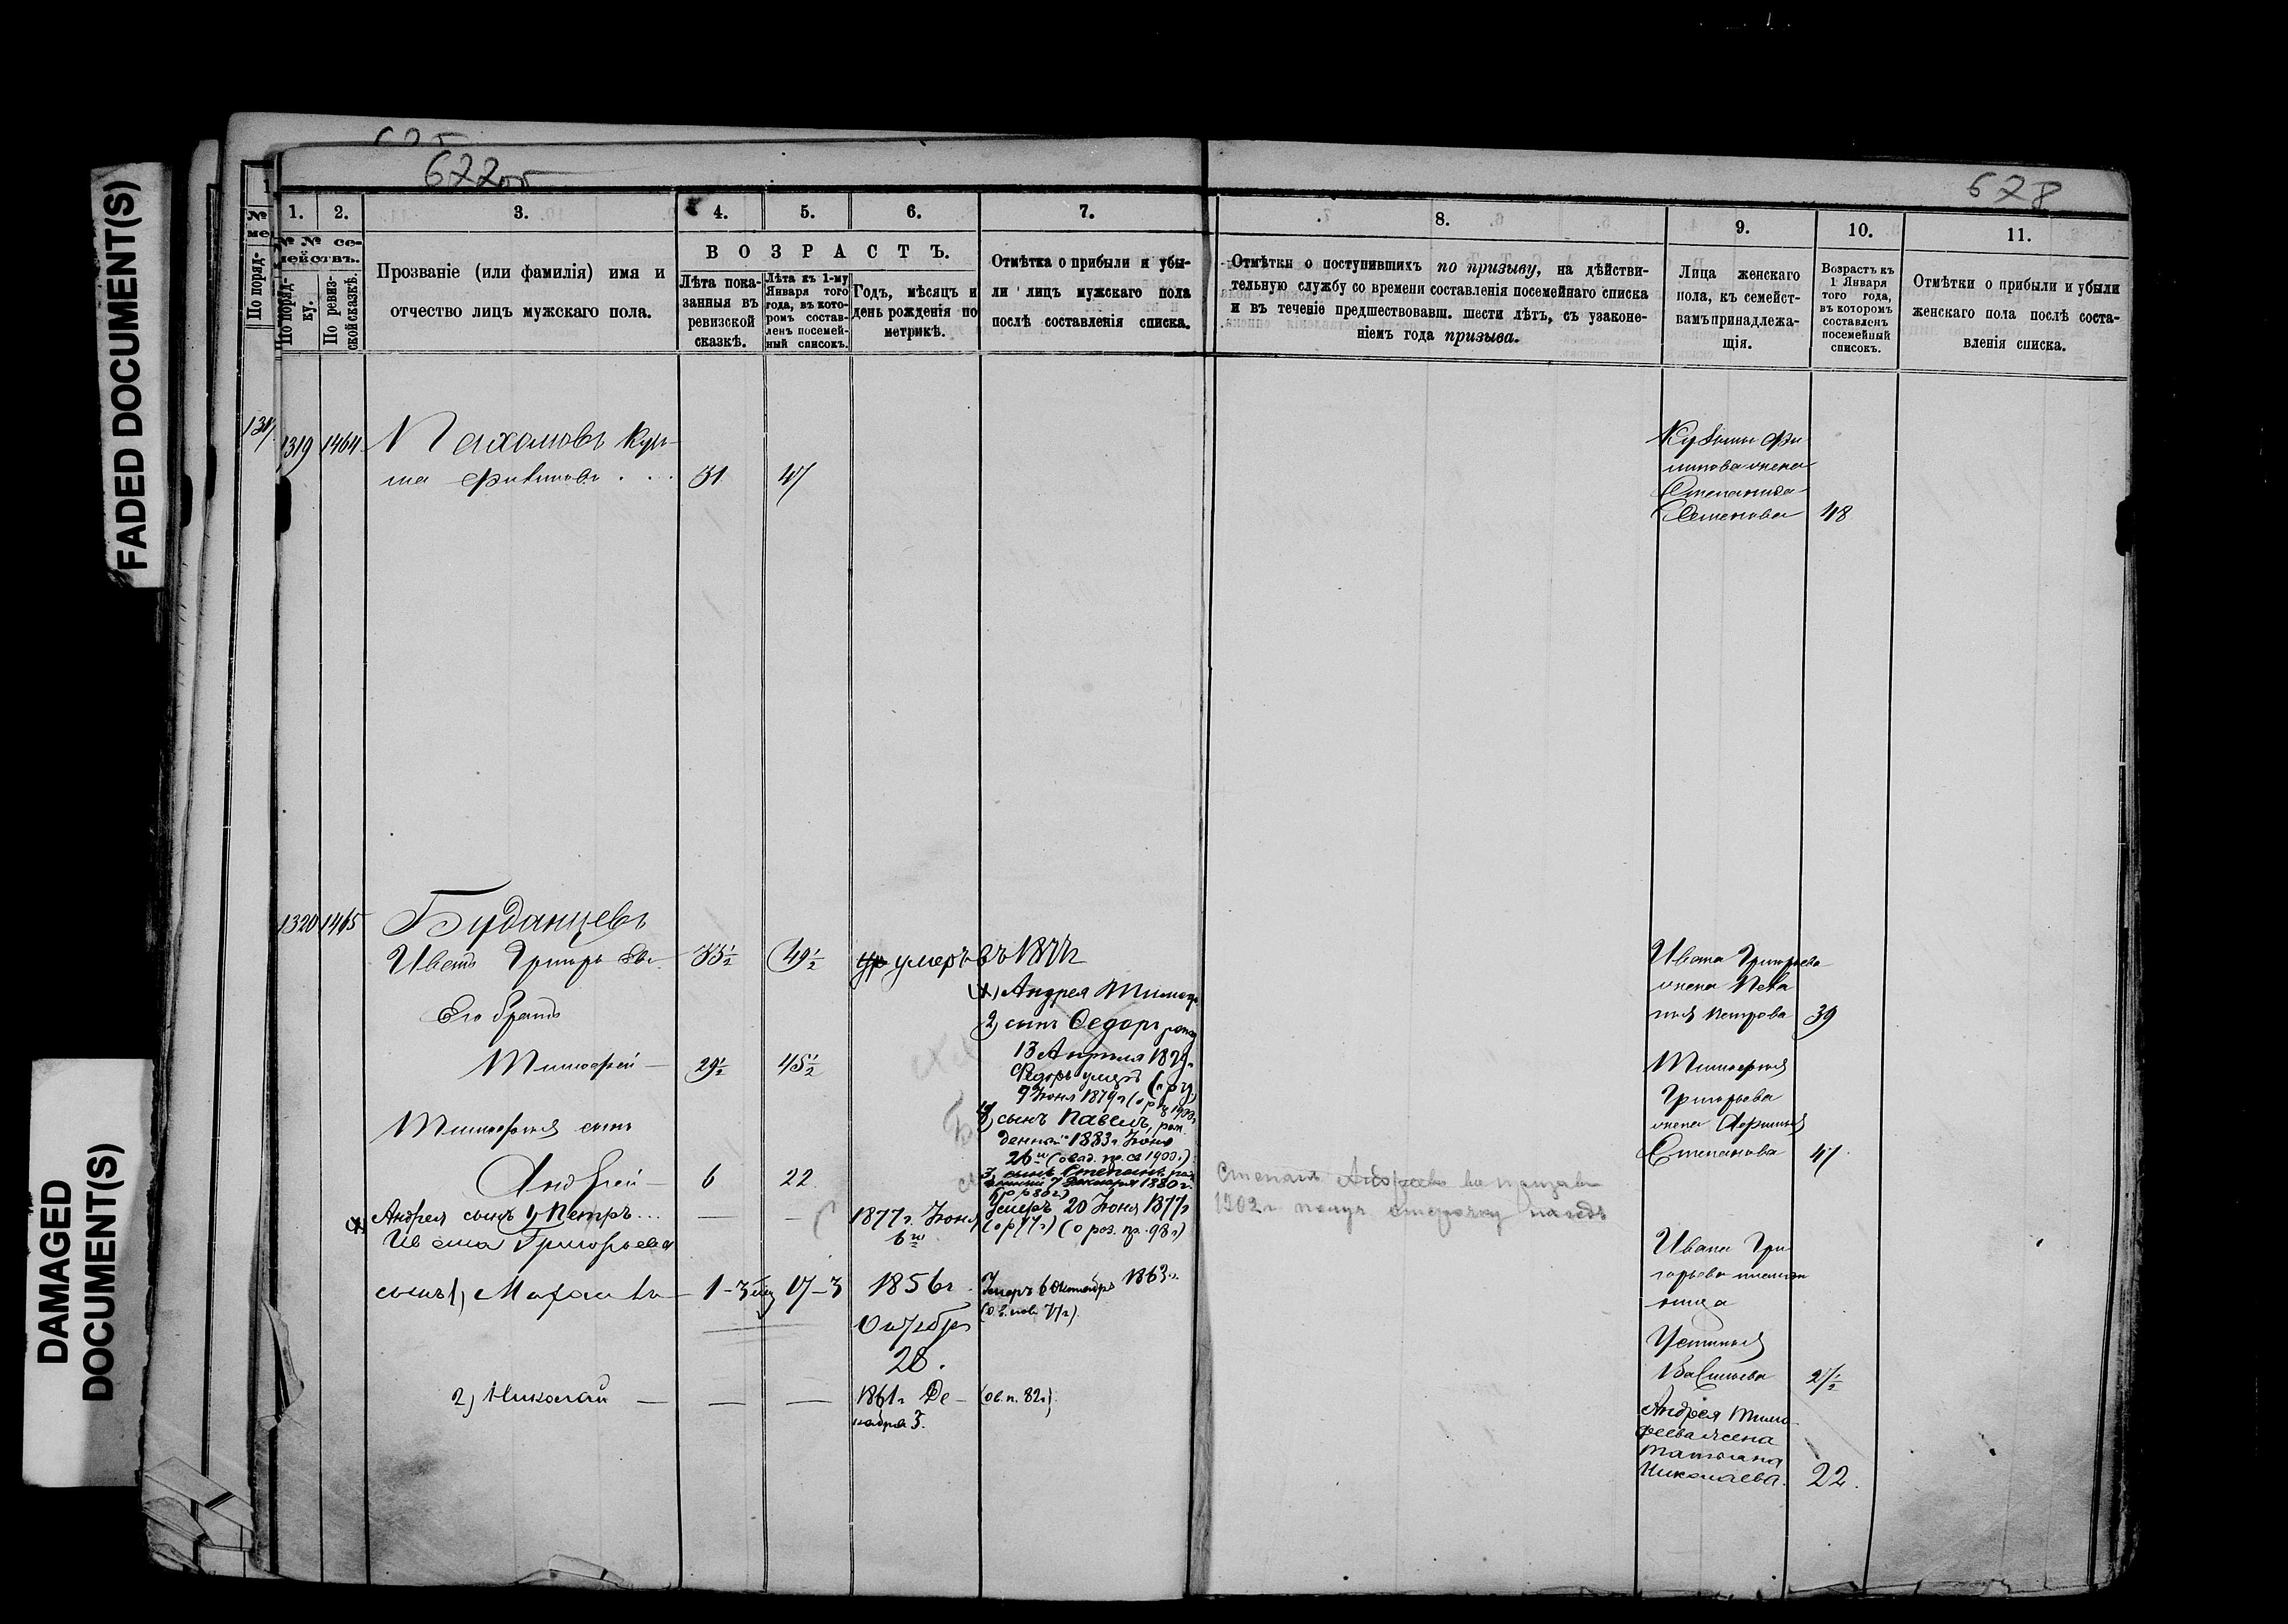 FADED DOCUMENT(S)
DAMAGED
DOCUMENT(S)
622об
628
1. 2. 3. 4. 5. 6. 7. 8. 9. 10. 11.
№ № се-
мействъ.
По поряд-
ку.
По ревиз-
ской сказкѣ.
Прозваніе (или фамилія) имя и
отчество лицъ мужскаго пола.
ВОЗРАСТЪ.
Лѣта пока-
занныя въ
ревизской
сказкѣ.
Лѣта къ 1-му
Января того
года, въ кото-
ромъ состав-
ленъ посемей-
ный списокъ.
Годъ, мѣсяцъ и
день рожденія по
метрикѣ.
Отмѣтка о прибыли и убы-
ли лицъ мужскаго пола
послѣ составленія списка.
Отмѣтки о поступившихъ по призыву, на дѣйстви-
тельную службу со времени составленія посемейнаго списка
и въ теченіе предшествовавш. шести лѣтъ, съ узаконе-
ніемъ года призыва.
Лица женскаго
пола, къ семейст-
вамъ принадлежа-
щія.
Возрастъ къ
1 Января
того года,
въ которомъ
составленъ
посемейный
списокъ.
Отмѣтки о прибыли и убыли
женскаго пола послѣ соста-
вленія списка.
1319 1464 Пахомовъ Кузь-
ма Филиповъ 31 47
Кузьмы Фи
липова жена
Степанида
Семенова 48
1320 1465 Буданцевъ
Иванъ Григорьевъ 33½ 49½ умеръ въ 187
Ивана Григорьева
жена Пела
гея Петрова 39
Его братъ
Тимофей 29½ 45½
(х) Андрея Тимоф
2) сынъ Федоръ
13 Апреля 187
Федоръ умеръ
9 Іюня 1879 г
Тимофея
Григорьева
жена
Степанова 47
Тимофея сынъ
Андрей 6 22
4) сынъ Павелъ, рож
денный 1883 г. Іюня
26
3. сынъ Степанъ
1880 г.
Степанъ Андреевъ въ призывъ
1902 г. получ отсрочку на годъ
(х) Андрея сынъ 1) Петръ... — — 1877 г. Іюня
6го
Умеръ 20 Іюня 1877 г
Ивана Григорьева
сынъ 1) 1-3 17-3 1856 г.
Октября
28.
Умеръ 6 Октября 1863 г.
Ивана Гри
горьева
Устинья
Васильева 27½
2) Николай — — — 1861 г. Де-
кабря 3.
(ов. п. 82 г.)
Андрея Тимо-
феева жена
Татьяна
Николаева. 22.